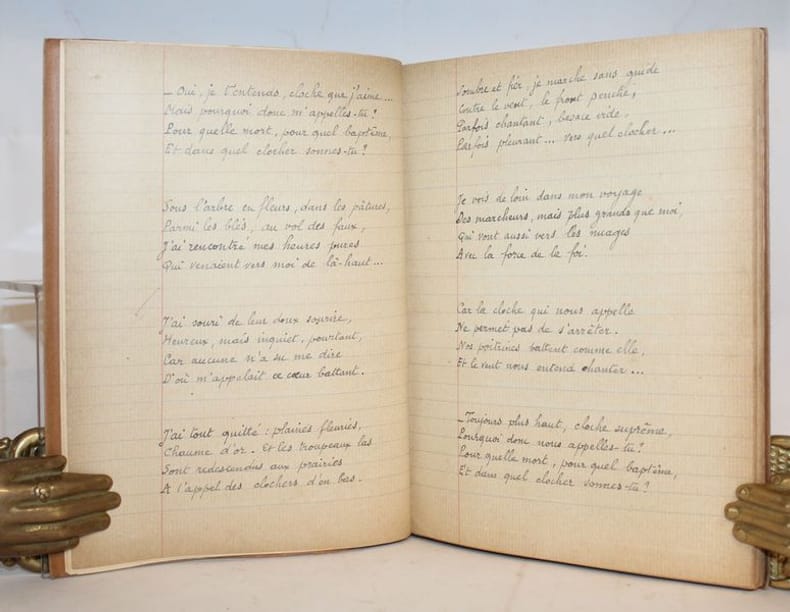 — Oui, je t'entends, cloche que j'aime...
Mais pourquoi donc m'appelles-tu ?
Pour quelle mort, pour quel baptême,
Et dans quel clocher sonnes-tu ?
Sous l'arbre en fleurs, dans les pâtures,
Parmi les blés, au vol des faux,
J'ai rencontré mes heures pures
Qui venaient vers moi de là-haut...
J'ai souri de leur doux sourire,
Heureux, mais inquiet, pourtant,
Car aucune n'a su me dire
D'où m'appelait ce cœur battant.
J'ai tout quitté : plaines fleuries,
Chaume d'or. Et les troupeaux las
Sont redescendus aux prairies
A l'appel des clochers d'en bas.
Sombre et fier, je marche sans guide
Contre le vent, le front penché,
Parfois chantant, besace vide,
Parfois pleurant... vers quel clocher...
Je vois de loin dans mon voyage
Des marcheurs, mais plus grands que moi,
Qui vont aussi vers les nuages
Avec la force de la foi.
Car la cloche qui nous appelle
Ne permet pas de s'arrêter.
Nos poitrines battent comme elle,
Et le vent nous entend chanter...
— Toujours plus haut, cloche suprême,
Pourquoi donc nous appelles-tu ?
Pour quelle mort, pour quel baptême,
Et dans quel clocher sonnes-tu ?